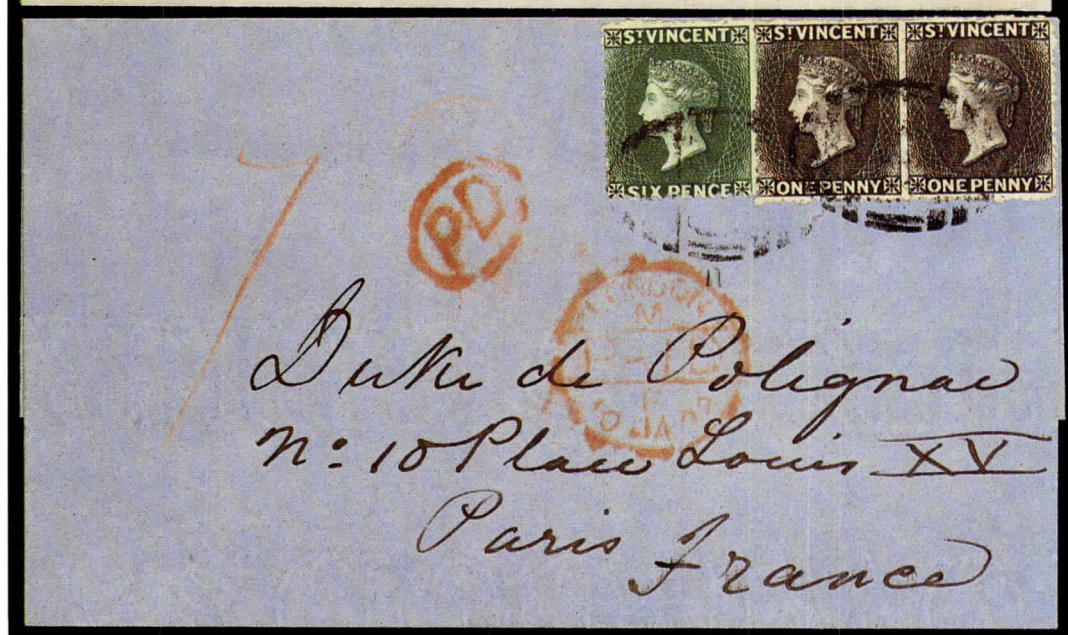 ST VINCENT
SIX PENCE
ST VINCENT
ONE PENNY
ST VINCENT
ONE PENNY
7
PD
LONDON
M
PAID
JA
Duke de Polignac
No: 10 Place Louis XV
Paris
France